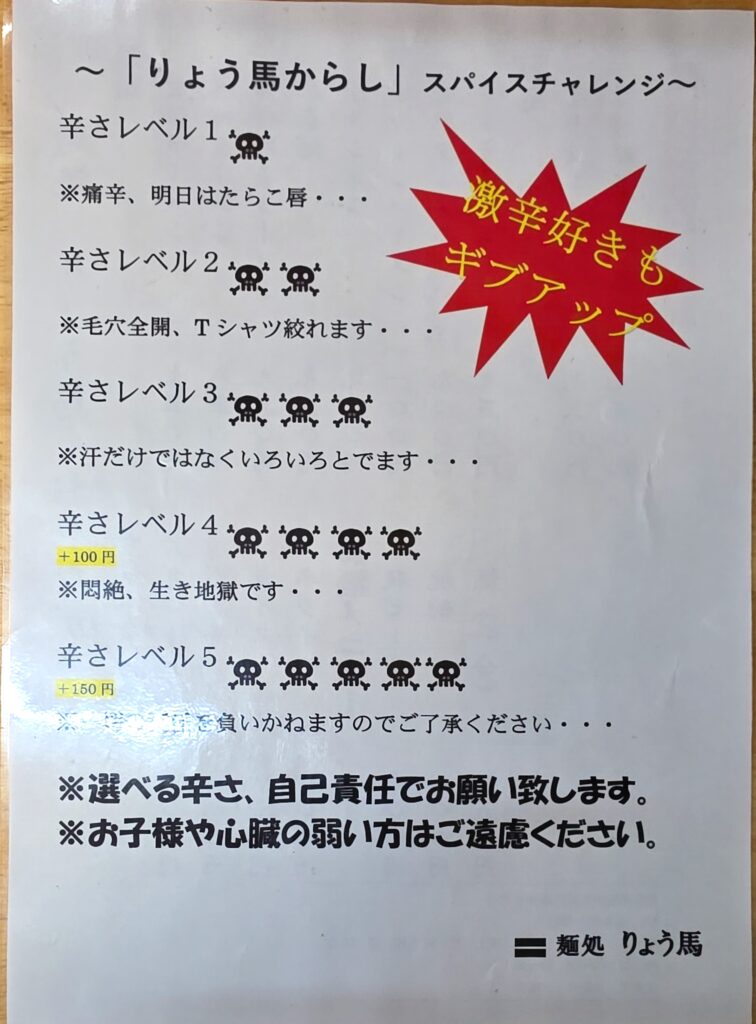 ～「りょう馬からし」スパイスチャレンジ～
辛さレベル１
※痛辛、明日はたらこ唇・・・
激辛好きも
ギブアップ
辛さレベル２
※毛穴全開、Tシャツ絞れます・・・
辛さレベル３
※汗だけではなくいろいろとでます・・・
辛さレベル４
＋100円
※悶絶、生き地獄です・・・
辛さレベル５
＋150円
※を負いかねますのでご了承ください・・・
※選べる辛さ、自己責任でお願い致します。
※お子様や心臓の弱い方はご遠慮ください。
麺処 りょう馬